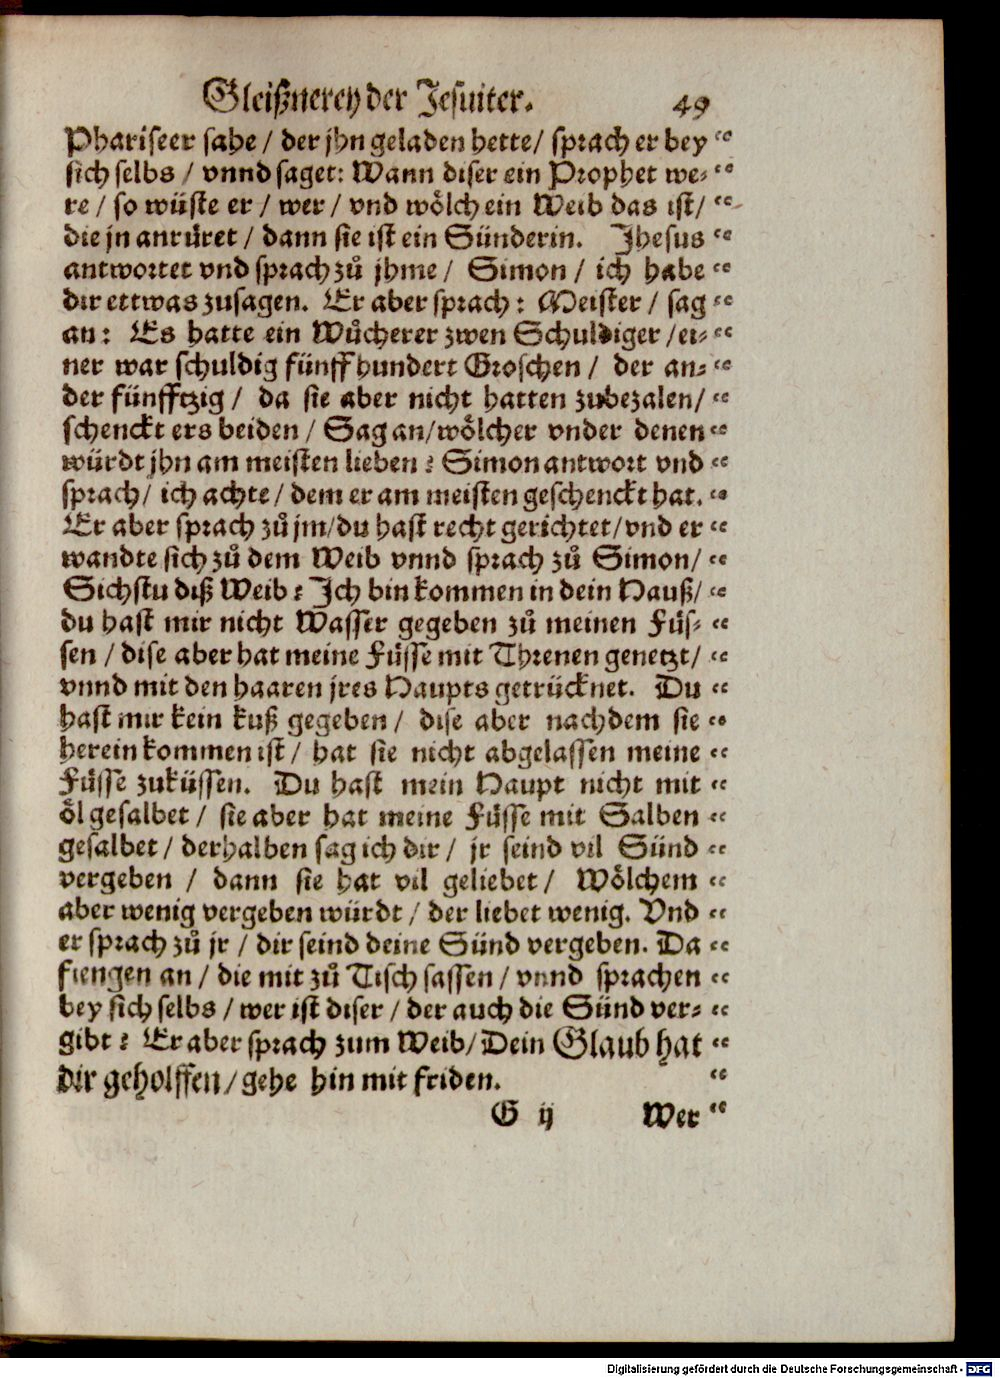 Gleißnerey der Jesuiter. 49
Phariseer sahe / der jhn geladen hette / sprach er bey “
sich selbs / vnnd saget: Wann diser ein Prophet we- “
re / so wüste er / wer / vnd woͤlch ein Weib das ist / “
die jn anruͤret / dann sie ist ein Sünderin. Jhesus “
antwortet vnd sprach zuͦ jhme / Simon / ich habe “
dir ettwas zusagen. Er aber sprach: Meister / sag “
an: Es hatte ein Wuͦcherer zwen Schuldiger / ei- “
ner war schuldig fünff hundert Groschen / der an- “
der fünfftzig / da sie aber nicht hatten zubezalen / “
schenckt ers beiden / Sag an / woͤlcher vnder denen “
würdt jhn am meisten lieben? Simon antwort vnd “
sprach / ich achte / dem er am meisten geschenckt hat. “
Er aber sprach zuͦ jm / du hast recht gerichtet / vnd er “
wandte sich zuͦ dem Weib vnnd sprach zuͦ Simon / “
Sichstu diß Weib? Ich bin kommen in dein Hauß / “
du hast mir nicht Wasser gegeben zuͦ meinen Fuͤs- “
sen / dise aber hat meine Fuͤsse mit Threnen genetzt / “
vnnd mit den haaren jres Haupts getrücknet. Du “
hast mir kein kuß gegeben / dise aber nachdem sie “
herein kommen ist / hat sie nicht abgelassen meine “
Fuͤsse zuküssen. Du hast mein Haupt nicht mit “
oͤl gesalbet / sie aber hat meine Fuͤsse mit Salben “
gesalbet / derhalben sag ich dir / jr seind vil Sünd “
vergeben / dann sie hat vil geliebet / Woͤlchem “
aber wenig vergeben würdt / der liebet wenig. Vnd “
er sprach zuͦ jr / dir seind deine Sünd vergeben. Da “
fiengen an / die mit zuͦ Tisch sassen / vnnd sprachen “
bey sich selbs / wer ist diser / der auch die Sünd ver- “
gibt? Er aber sprach zum Weib / Dein Glaub hat “
dir geholffen / gehe hin mit friden. “
G ij Wer “
Digitalisierung gefördert durch die Deutsche Forschungsgemeinschaft - DFG